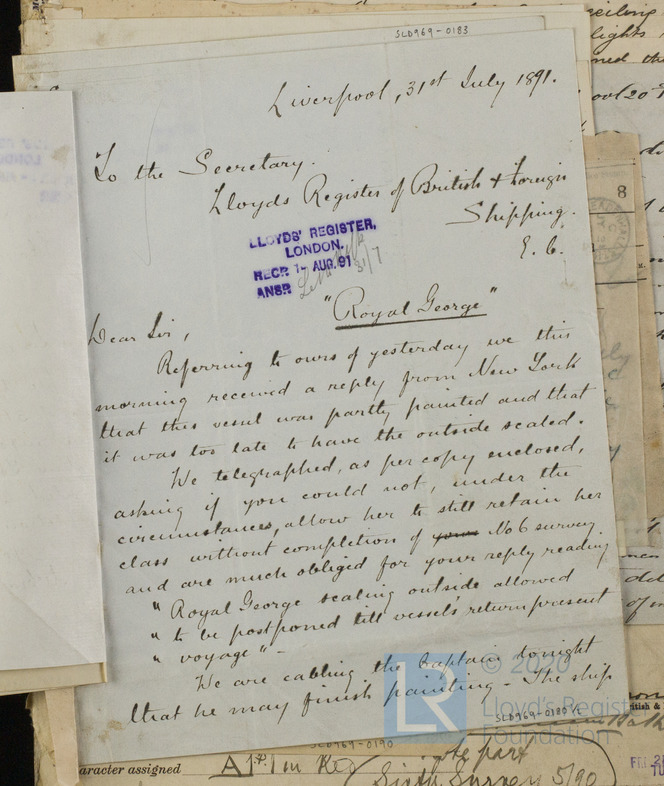 SLD969-0183
Liverpool, 31st July 1891.
To the Secretary.
Lloyds Register of British & Foreign
Shipping.
E. C.
LLOYDS' REGISTER,
LONDON.
RECR 1- AUG. 91
ANSR
31/7
"Royal George"
Dear Sir,
Referring to ours of yesterday we this
morning received a reply from New York
that this vessel was partly painted and that
it was too late to have the outside scaled.
We telegraphed, as per copy enclosed,
asking if you could not, under the
circumstances, allow her to still retain her
class without completion of yours No 6 survey
and are much obliged for your reply reading
"Royal George scaling outside allowed
" to be postponed till vessels return present
" voyage" -
We are cabling the Captain tonight
that he may finish painting - The ship
© 2020
LR
Lloyd's Register
Foundation
SLD969-0190
aracter assigned
Sixth Survey 5/90
8
lights